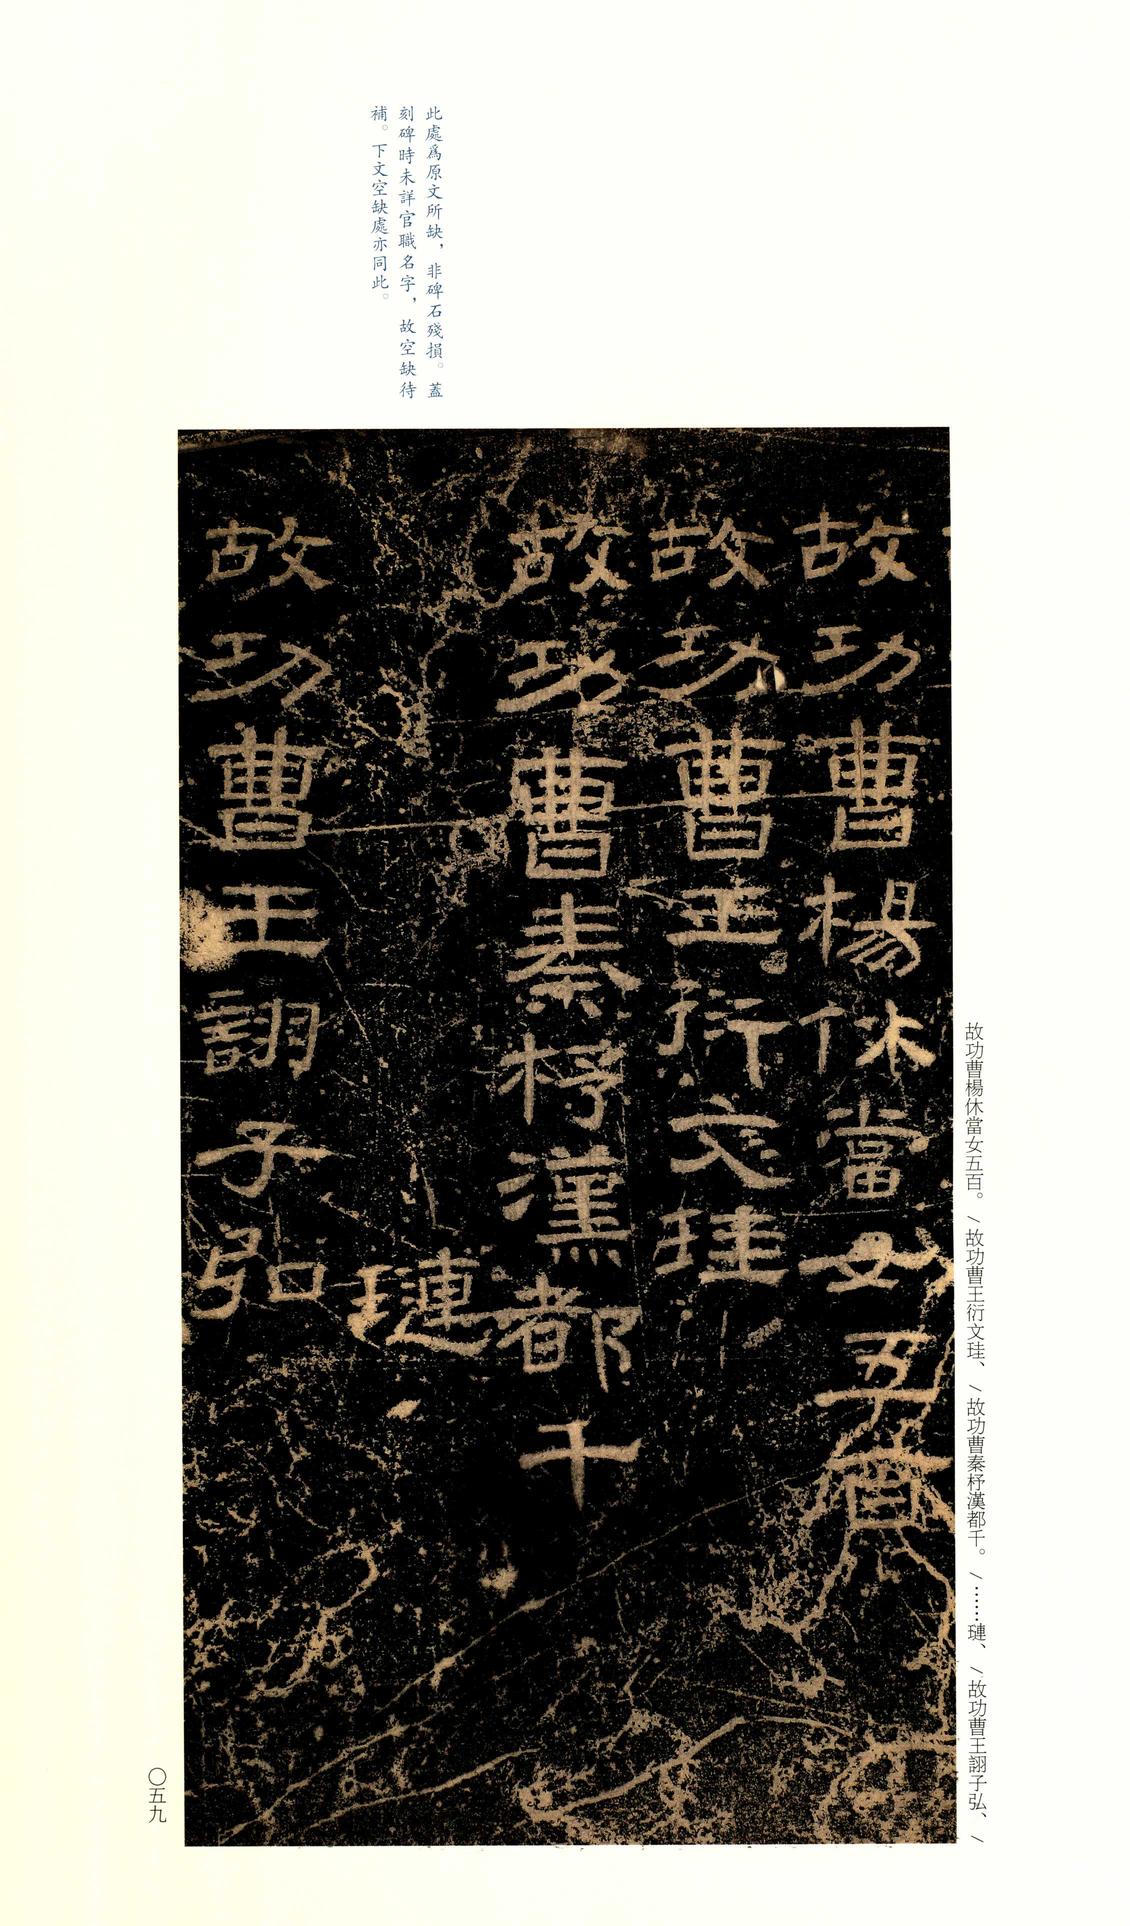 此處爲原文所缺，非碑石殘損。蓋
刻碑時未詳官職名字，故空缺待
補。下文空缺處亦同此。
故功曹楊休當女五百。／故功曹王衍文珪、／故功曹秦杼漢都千。／……璉、／故功曹王詡子弘、／
故功曹楊休當女五百
故功曹王衍文珪
故功曹秦杼漢都千
璉
故功曹王詡子弘
〇五九